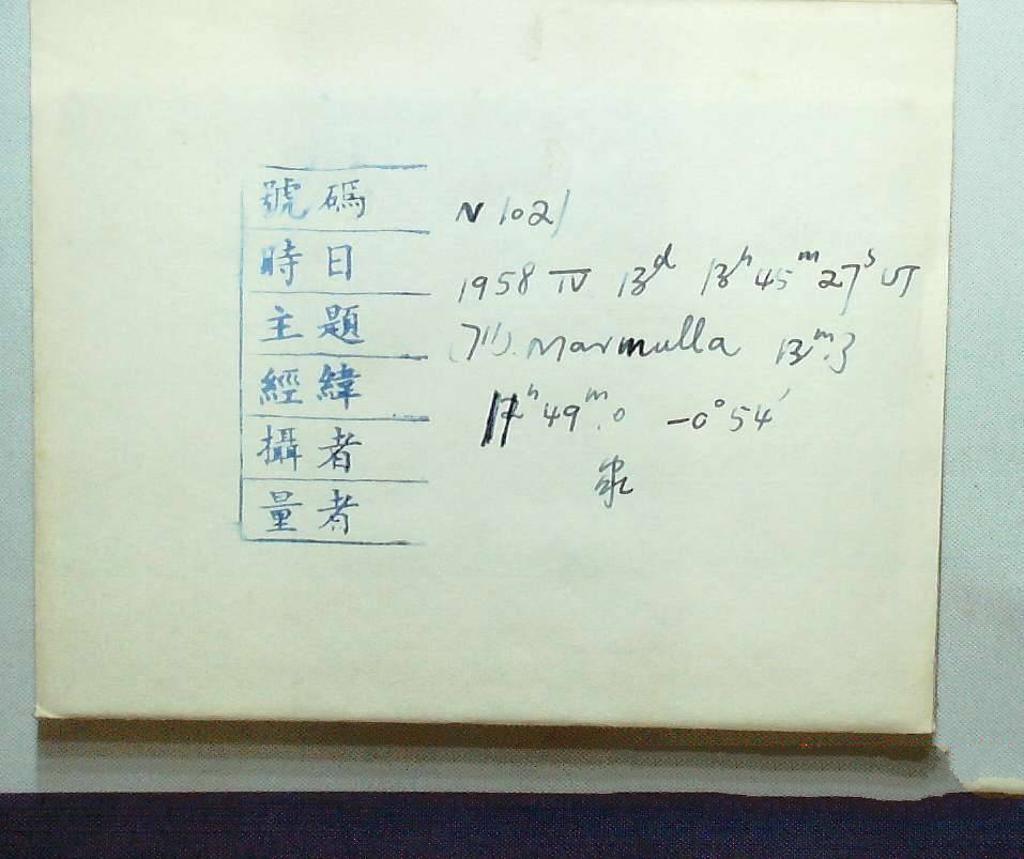 號碼 N 1021
時日 1958 IV 13ᵈ 13ʰ 45ᵐ 27ˢ UT
主題 (711). Marmulla 13ᵐ.3
經緯 49ᵐ.0 -0°54′
攝者
量者